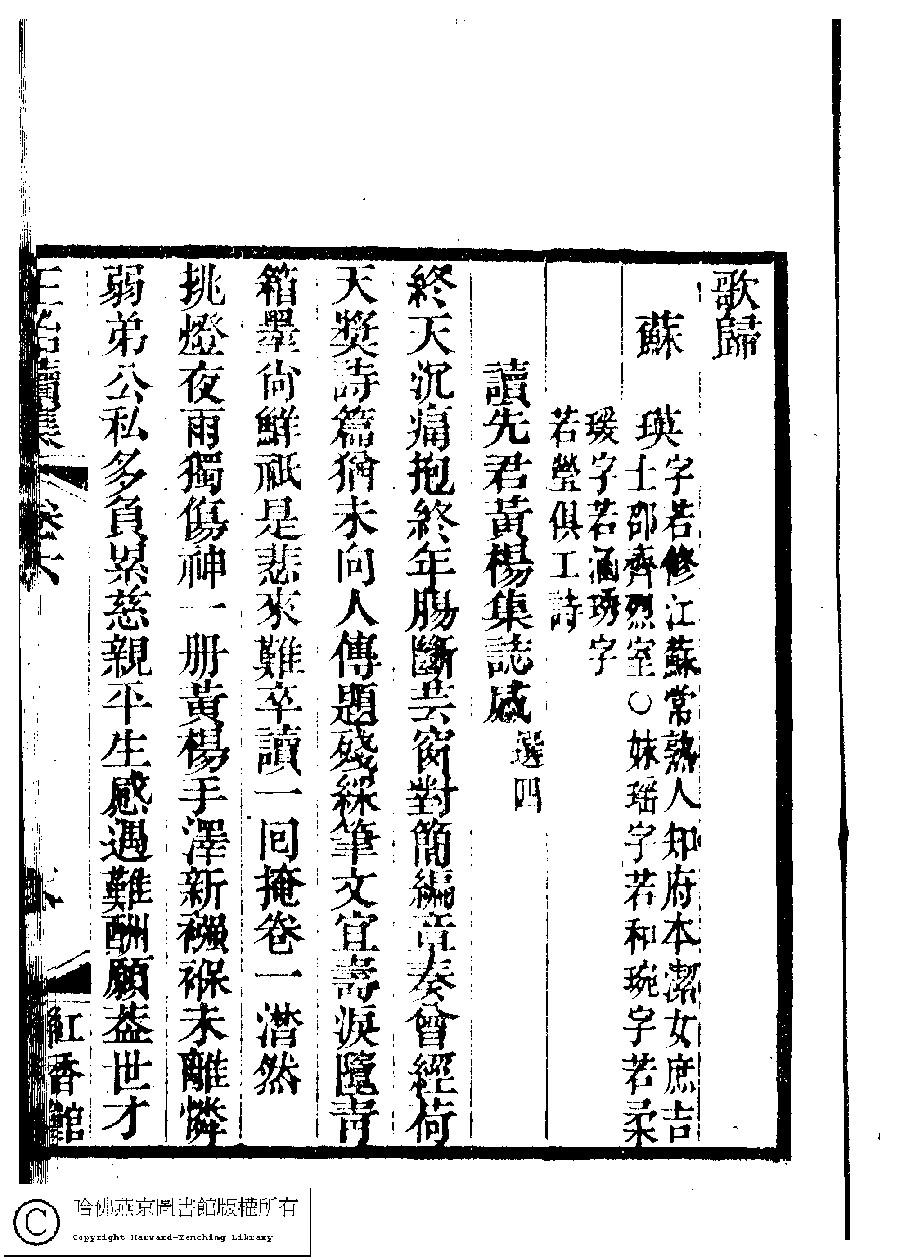 歌歸
蘇　瑛字若修江蘇常熟人知府本潔女庶吉
士邵齊烈室○妹瑶字若和琬字若柔
瑗字若涵琇字
若瑩俱工詩
讀先君黃楊集誌感選四
終天沉痛抱終年腸斷芸窗對簡編章奏曾經荷
天奬詩篇猶未向人傳題殘綵筆文宜壽淚隨青
箱墨尙鮮祇是悲來難卒讀一回掩卷一潸然
挑燈夜雨獨傷神一册黃楊手澤新襁褓未離憐
弱弟公私多負累慈親平生感遇難酬願葢世才
紅香館
哈佛燕京圖書館版權所有
Copyright Harvard-Yenching Library